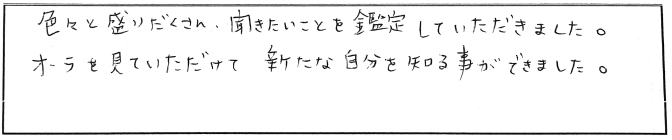 色々と盛りだくさん、聞きたいことを鑑定していただきました。
オーラを見ていただけて 新たな自分を知る事ができました。